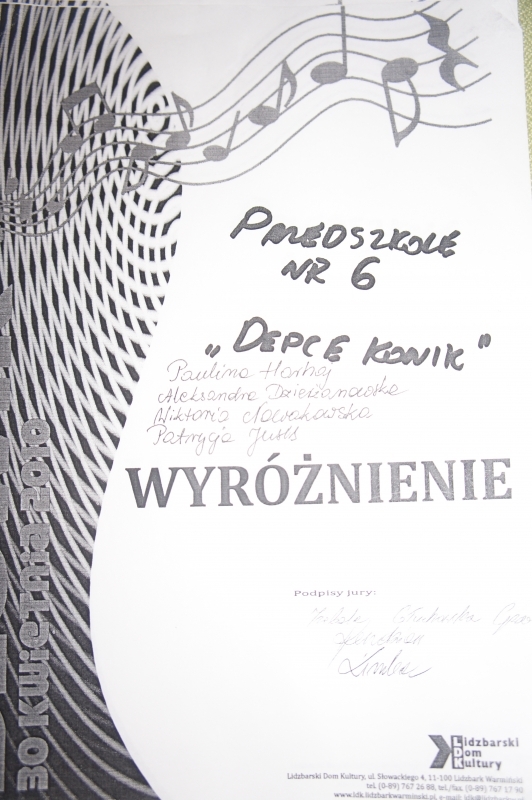 PRZEDSZKOLE
NR 6
„DEPCE KONIK"
Paulina Harhaj
Aleksandra Dzierżanowska
Wiktoria Nowakowska
Patrycja
WYRÓŻNIENIE
Podpisy jury:
30 kwietnia 2010
Lidzbarski
Dom
Kultury
Lidzbarski Dom Kultury, ul. Słowackiego 4, 11-100 Lidzbark Warmiński
tel. (0-89) 767 26 88, tel./fax. (0-89) 767 17 90
www.ldk.lidzbarkwarminski.pl, e-mail: